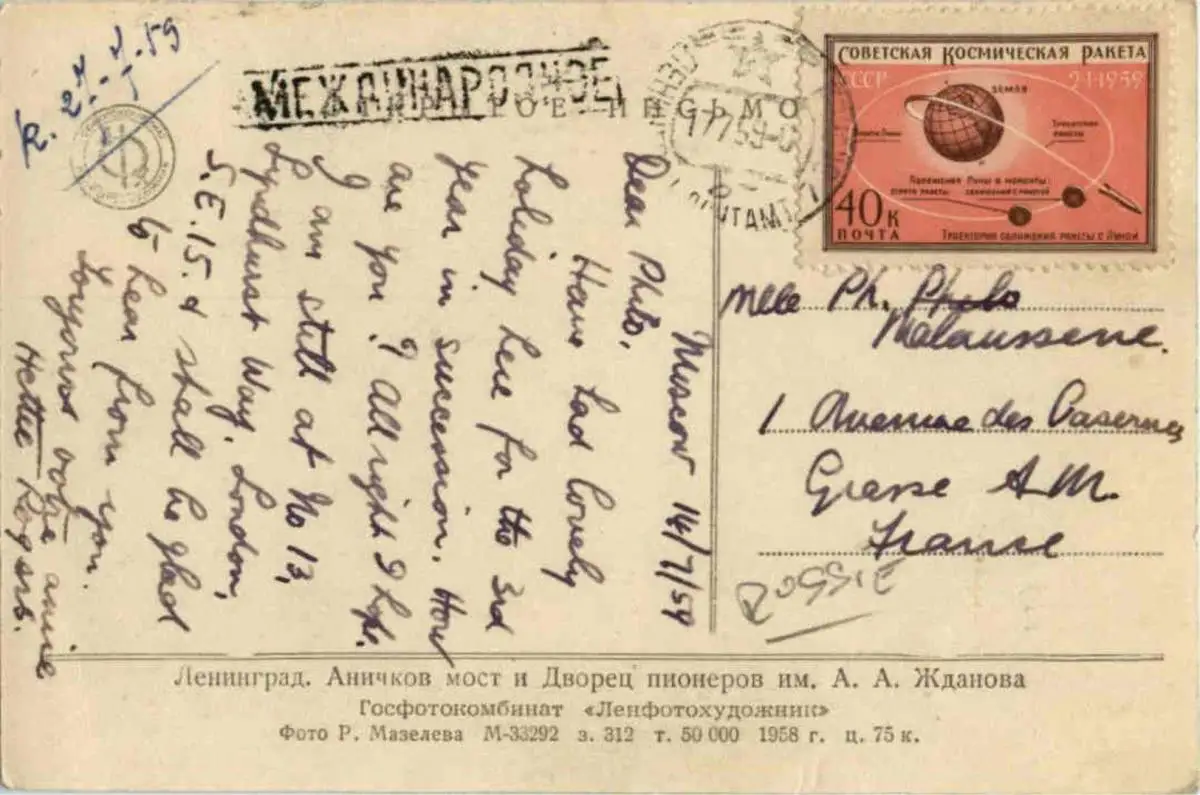 R. 27-7-59
МЕЖДУНАРОДНОЕ
РОЕ ПИСЬМО
СОВЕТСКАЯ КОСМИЧЕСКАЯ РАКЕТА
СССР 2·I·1959
ЗЕМЛЯ
ТРАЕКТОРИЯ РАКЕТЫ
ПОЛОЖЕНИЯ ЛУНЫ В МОМЕНТЫ:
СТАРТА РАКЕТЫ СБЛИЖЕНИЯ С РАКЕТОЙ
40 К
ПОЧТА
ТРАЕКТОРИЯ СБЛИЖЕНИЯ РАКЕТЫ С ЛУНОЙ
Moscow 14/7/59
Dear Philo,
Have had lovely
holiday here for the 3rd
year in succession. How
are you? All right I hope.
I am still at No 13,
Lyndhurst Way, London,
S.E.15. & shall be glad
to hear from you.
Toujours votre amie
Hettie Rogers.
Mlle Ph. Philo
Malaussene.
1 Avenue des Casernes
Grasse A.M.
France
RUSSIE
Ленинград. Аничков мост и Дворец пионеров им. А. А. Жданова
Госфотокомбинат «Ленфотохудожник»
Фото Р. Мазелева М-33292 з. 312 т. 50 000 1958 г. ц. 75 к.